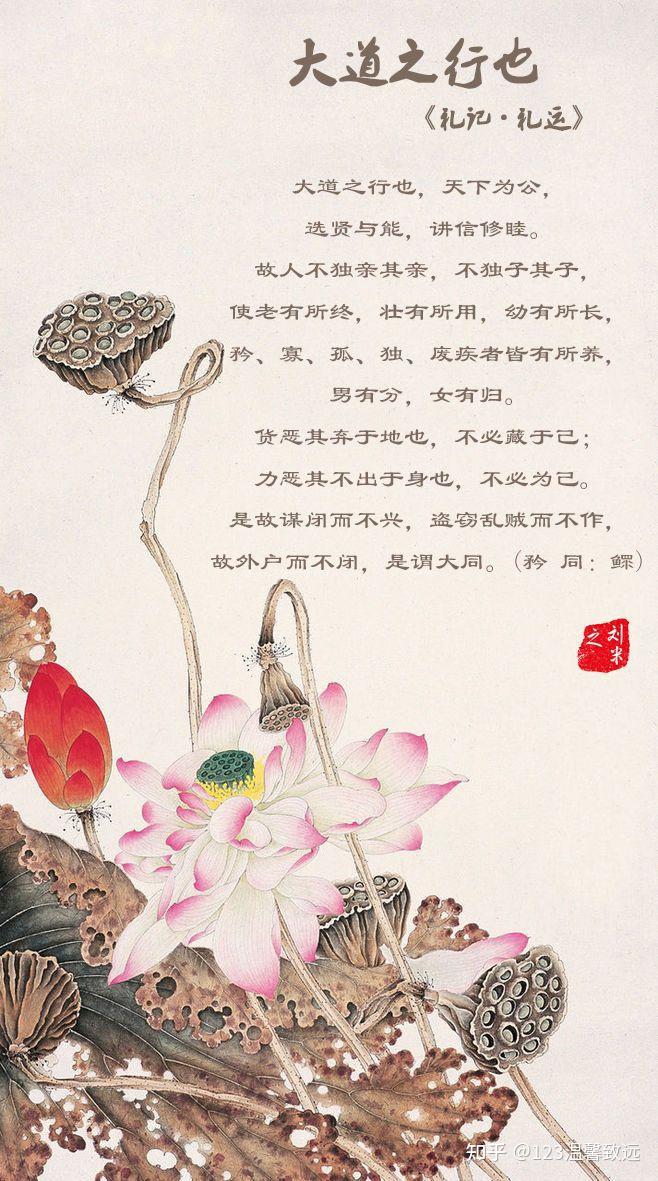 大道之行也
《礼记·礼运》
大道之行也，天下为公，
选贤与能，讲信修睦。
故人不独亲其亲，不独子其子，
使老有所终，壮有所用，幼有所长，
矜、寡、孤、独、废疾者皆有所养，
男有分，女有归。
货恶其弃于地也，不必藏于己；
力恶其不出于身也，不必为己。
是故谋闭而不兴，盗窃乱贼而不作，
故外户而不闭，是谓大同。（矜 同：鳏）
刘米
之
知乎 @123温馨致远